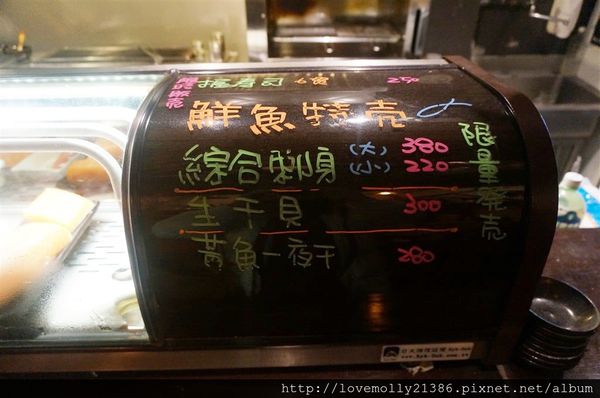 握壽司 6貫 250
鮮魚特売
綜合刺身 (大) 380
(小) 220
生干貝 300
黃魚一夜干 280
限量発売
http://lovemolly21386.pixnet.net/album